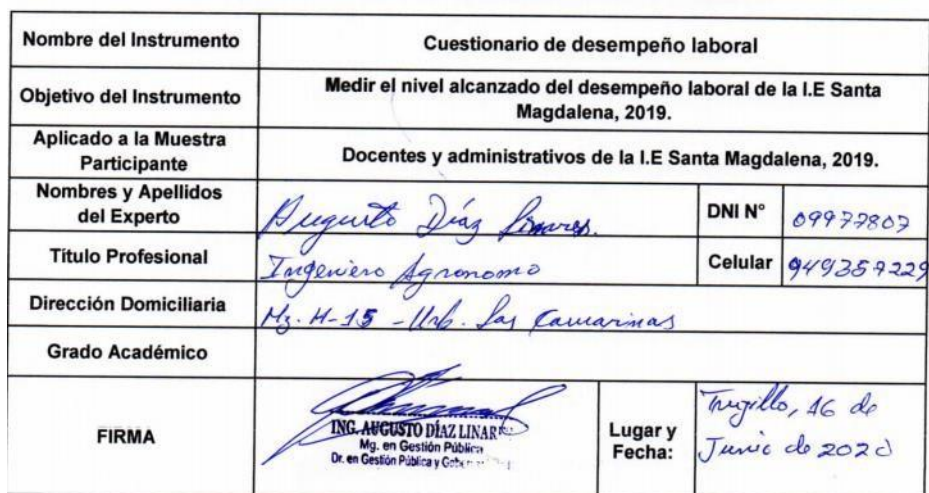 Nombre del Instrumento
Cuestionario de desempeño laboral
Objetivo del Instrumento
Medir el nivel alcanzado del desempeño laboral de la I.E Santa
Magdalena, 2019.
Aplicado a la Muestra
Participante
Docentes y administrativos de la I.E Santa Magdalena, 2019.
Nombres y Apellidos
del Experto
Augusto Díaz Linares.
DNI N°
09977807
Título Profesional
Ingeniero Agronomo
Celular
949357229
Dirección Domiciliaria
Mz. H-15 - Urb. Las Casuarinas
Grado Académico
FIRMA
ING. AUGUSTO DÍAZ LINARES
Mg. en Gestión Pública
Dr. en Gestión Pública y
Lugar y
Fecha:
Trujillo, 16 de
Junio de 2020